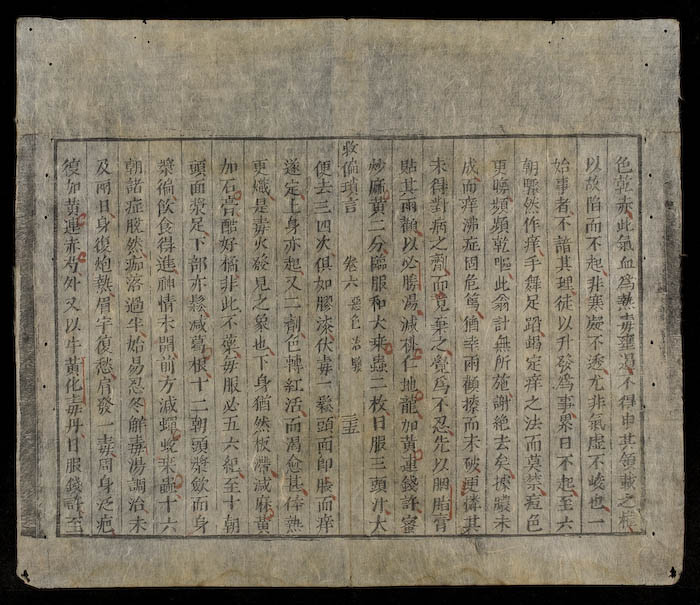 色乾赤此氣血為熱毒壅遏不得申其領載之權
以故陷而不起非寒凝不透尤非氣虛不峻也一
始事者不諳其理徒以升發為事累日不起至六
朝驟然作痒手舞足蹈錫定痒之法而莫禁痘色
更曚頻頻乾嘔此翁計無所施謝絕去矣揆膿未
成而痒沸症固危篤猶幸兩顴擦而未破更憐其
未得對病之劑而竟棄之覺為不忍先以胭脂膏
貼其兩顴以必勝湯減桃仁地龍加黃連錢許蜜
炒麻黃二分臨服和大桑蟲二枚日服三頭汁大
救偏瑣言 卷六 惡色治驗 三五
便去三四次俱如膠漆伏毒一鬆頭面即脹而痒
遂定上身亦起又二劑色轉紅活而渴愈甚体熱
更熾是毒火發見之象也下身猶然板滯減麻黃
加石膏酷好橘非此不藥每服必五六絕至十朝
頭面漿足下部亦鬆減葛根十二朝頭漿斂而身
漿徧飲食得進神情未開前方減蟬蛻桑蟲十六
朝諸症脫然痂落過半始易忍冬解毒湯調治未
及兩日身復炮熱眉宇復愁肩發一毒周身泛疤
復加黃連赤芍外又以牛黃化毒丹日服錢許至